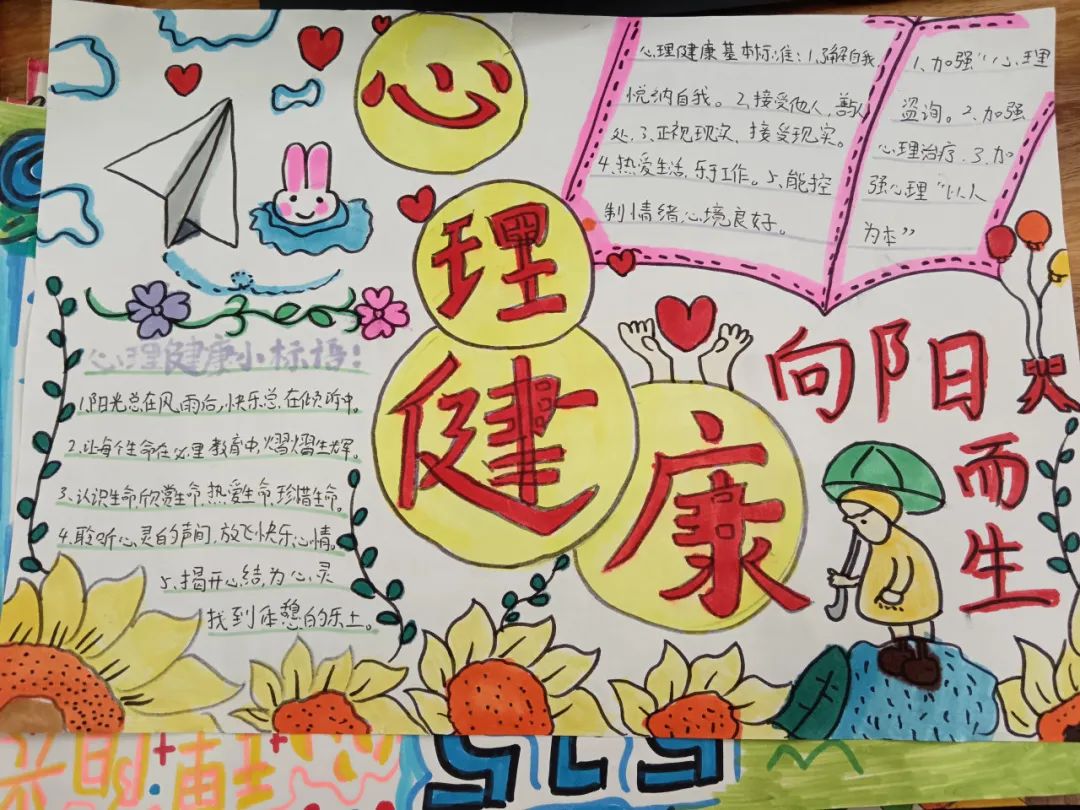 心理健康
心理健康基本标准:1.了解自我
悦纳自我。2.接受他人,善人
处.3.正视现实、接受现实。
4.热爱生活,乐于工作。5.能控
制情绪心境良好。
1.加强“心理
咨询。2.加强
心理治疗.3.加
强心理“以人
为本”
向阳
而
生
心理健康小标语:
1.阳光总在风雨后,快乐总在倾听中。
2.让每个生命在心理教育中,熠熠生辉。
3.认识生命,欣赏生命,热爱生命,珍惜生命。
4.聆听心灵的声间,放飞快乐心情。
5.揭开心结,为心灵
找到休憩的乐土。